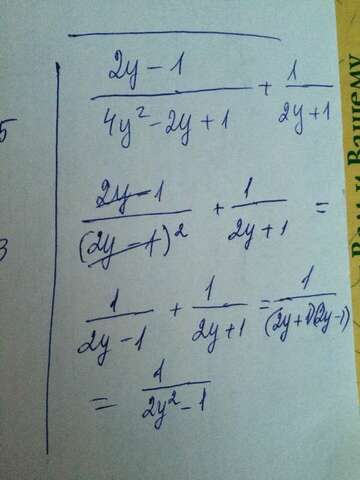 5
(2y - 1) / (4y² - 2y + 1) + 1 / (2y + 1)
(2y - 1) / (2y - 1)² + 1 / (2y + 1) =
3
1 / (2y - 1) + 1 / (2y + 1) = 1 / (2y + 1)(2y - 1)
= 1 / (2y² - 1)
Вашему